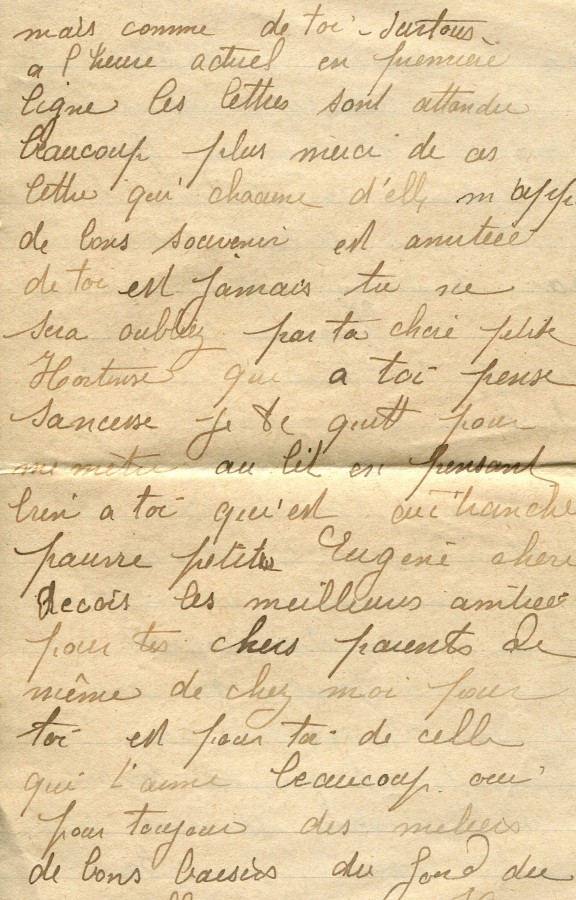 mais comme de toi - surtous -
a l'heure actuel en premiere
ligne les lettres sont attandu
beaucoup plus merci de as
lettre qui chacune d'elle m'app
de bons souvenir est amitiee
de toi est jamais tu ne
sera oubliez par ta cheré petite
Hortense que a toi pense
sancesse je te quitt pour
me metre au lit en pensant
bien a toi qu'est aui tranché
pauvre petite Eugené cheri
Recois les meilleurs amitiee
pour tes chers parents de
même de chez moi pour
toi est pour toi de celle
qui t'aime beaucoup oui
pour toujour des meliers
de bons baisers du fond du